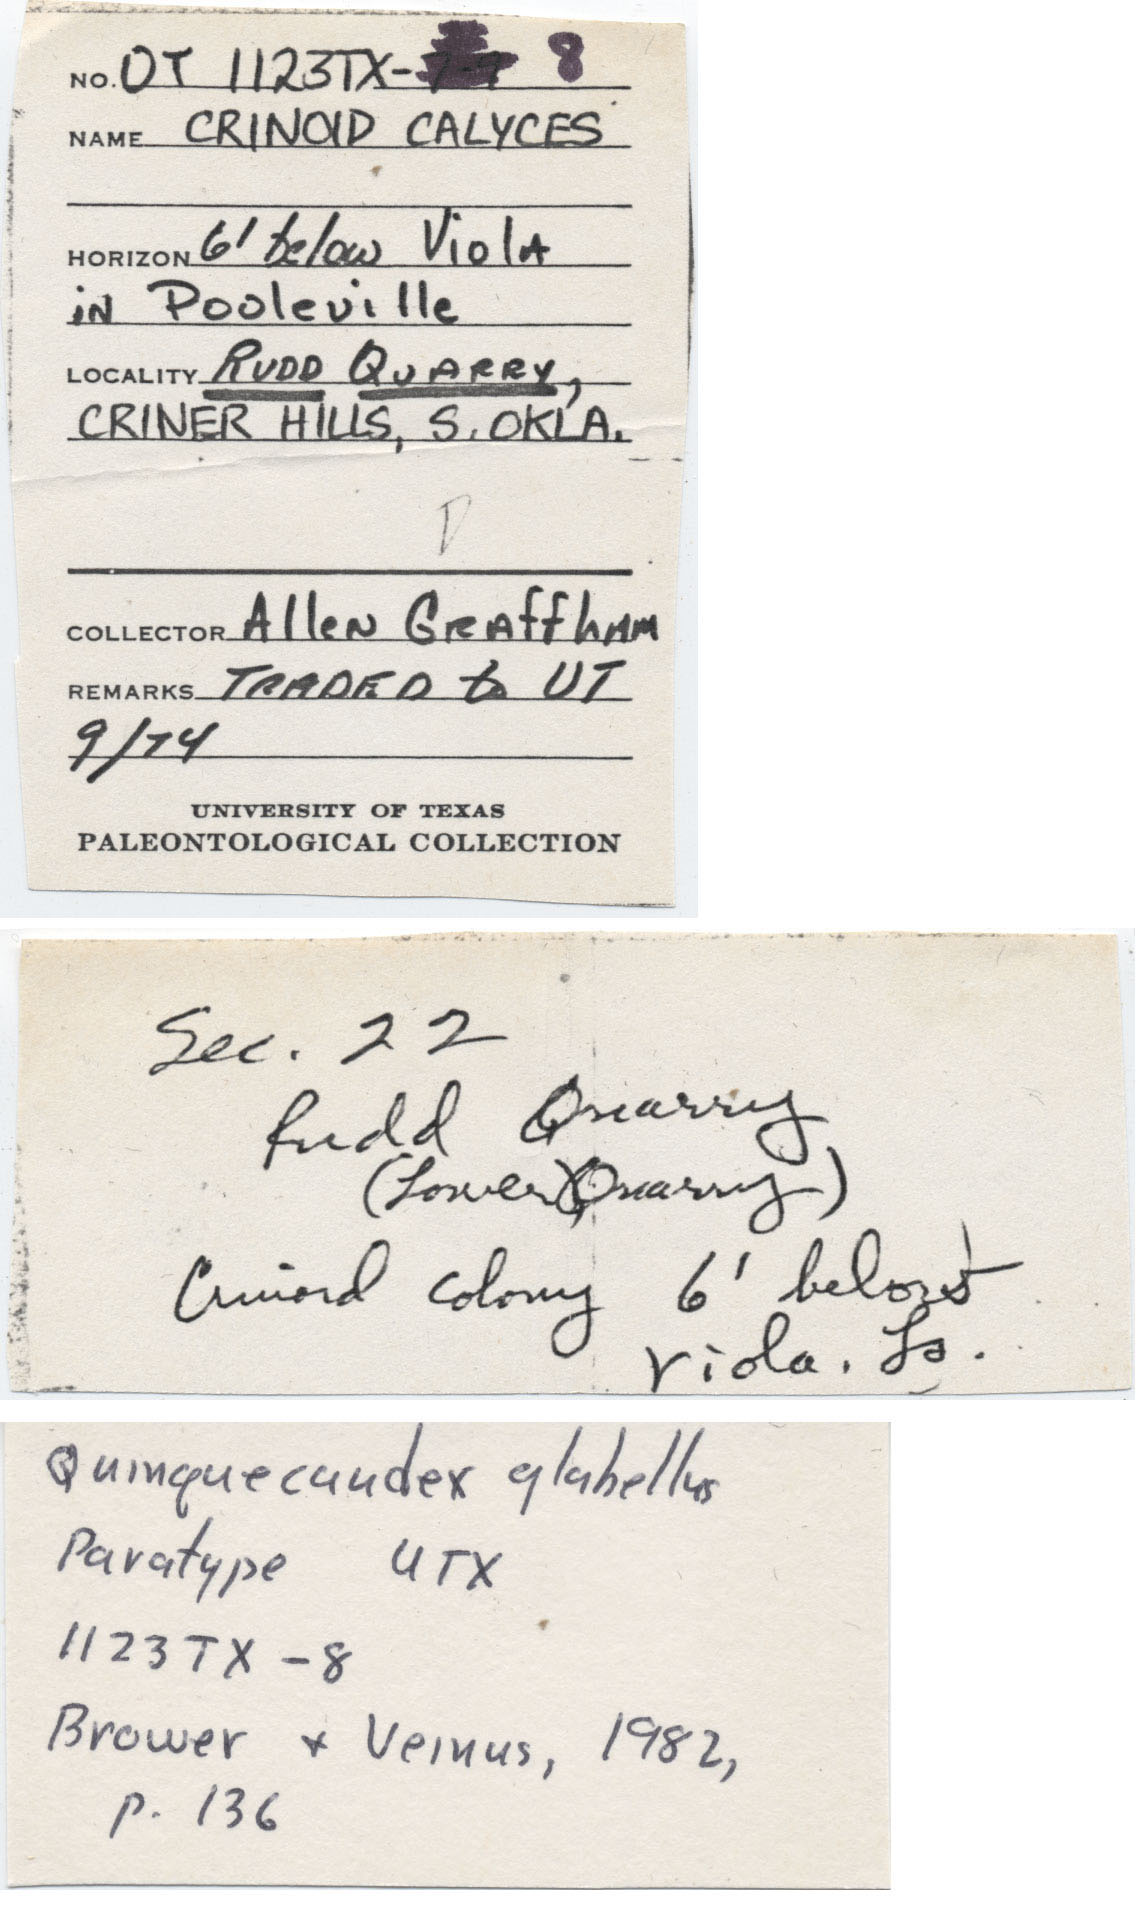 NO. OT 1123TX- 8
NAME CRINOID CALYCES
HORIZON 6' below Viola
in Pooleville
LOCALITY RUDD QUARRY,
CRINER HILLS, S. OKLA.
D
COLLECTOR Allen Graffham
REMARKS TRADED to UT
9/74
UNIVERSITY OF TEXAS
PALEONTOLOGICAL COLLECTION
Sec. 22
Rudd Quarry
(Lower Quarry)
Crinoid colony 6' below
Viola. Ls.
Quinquecaudex glabellus
Paratype UTX
1123TX-8
Brower + Veinus, 1982,
p. 136